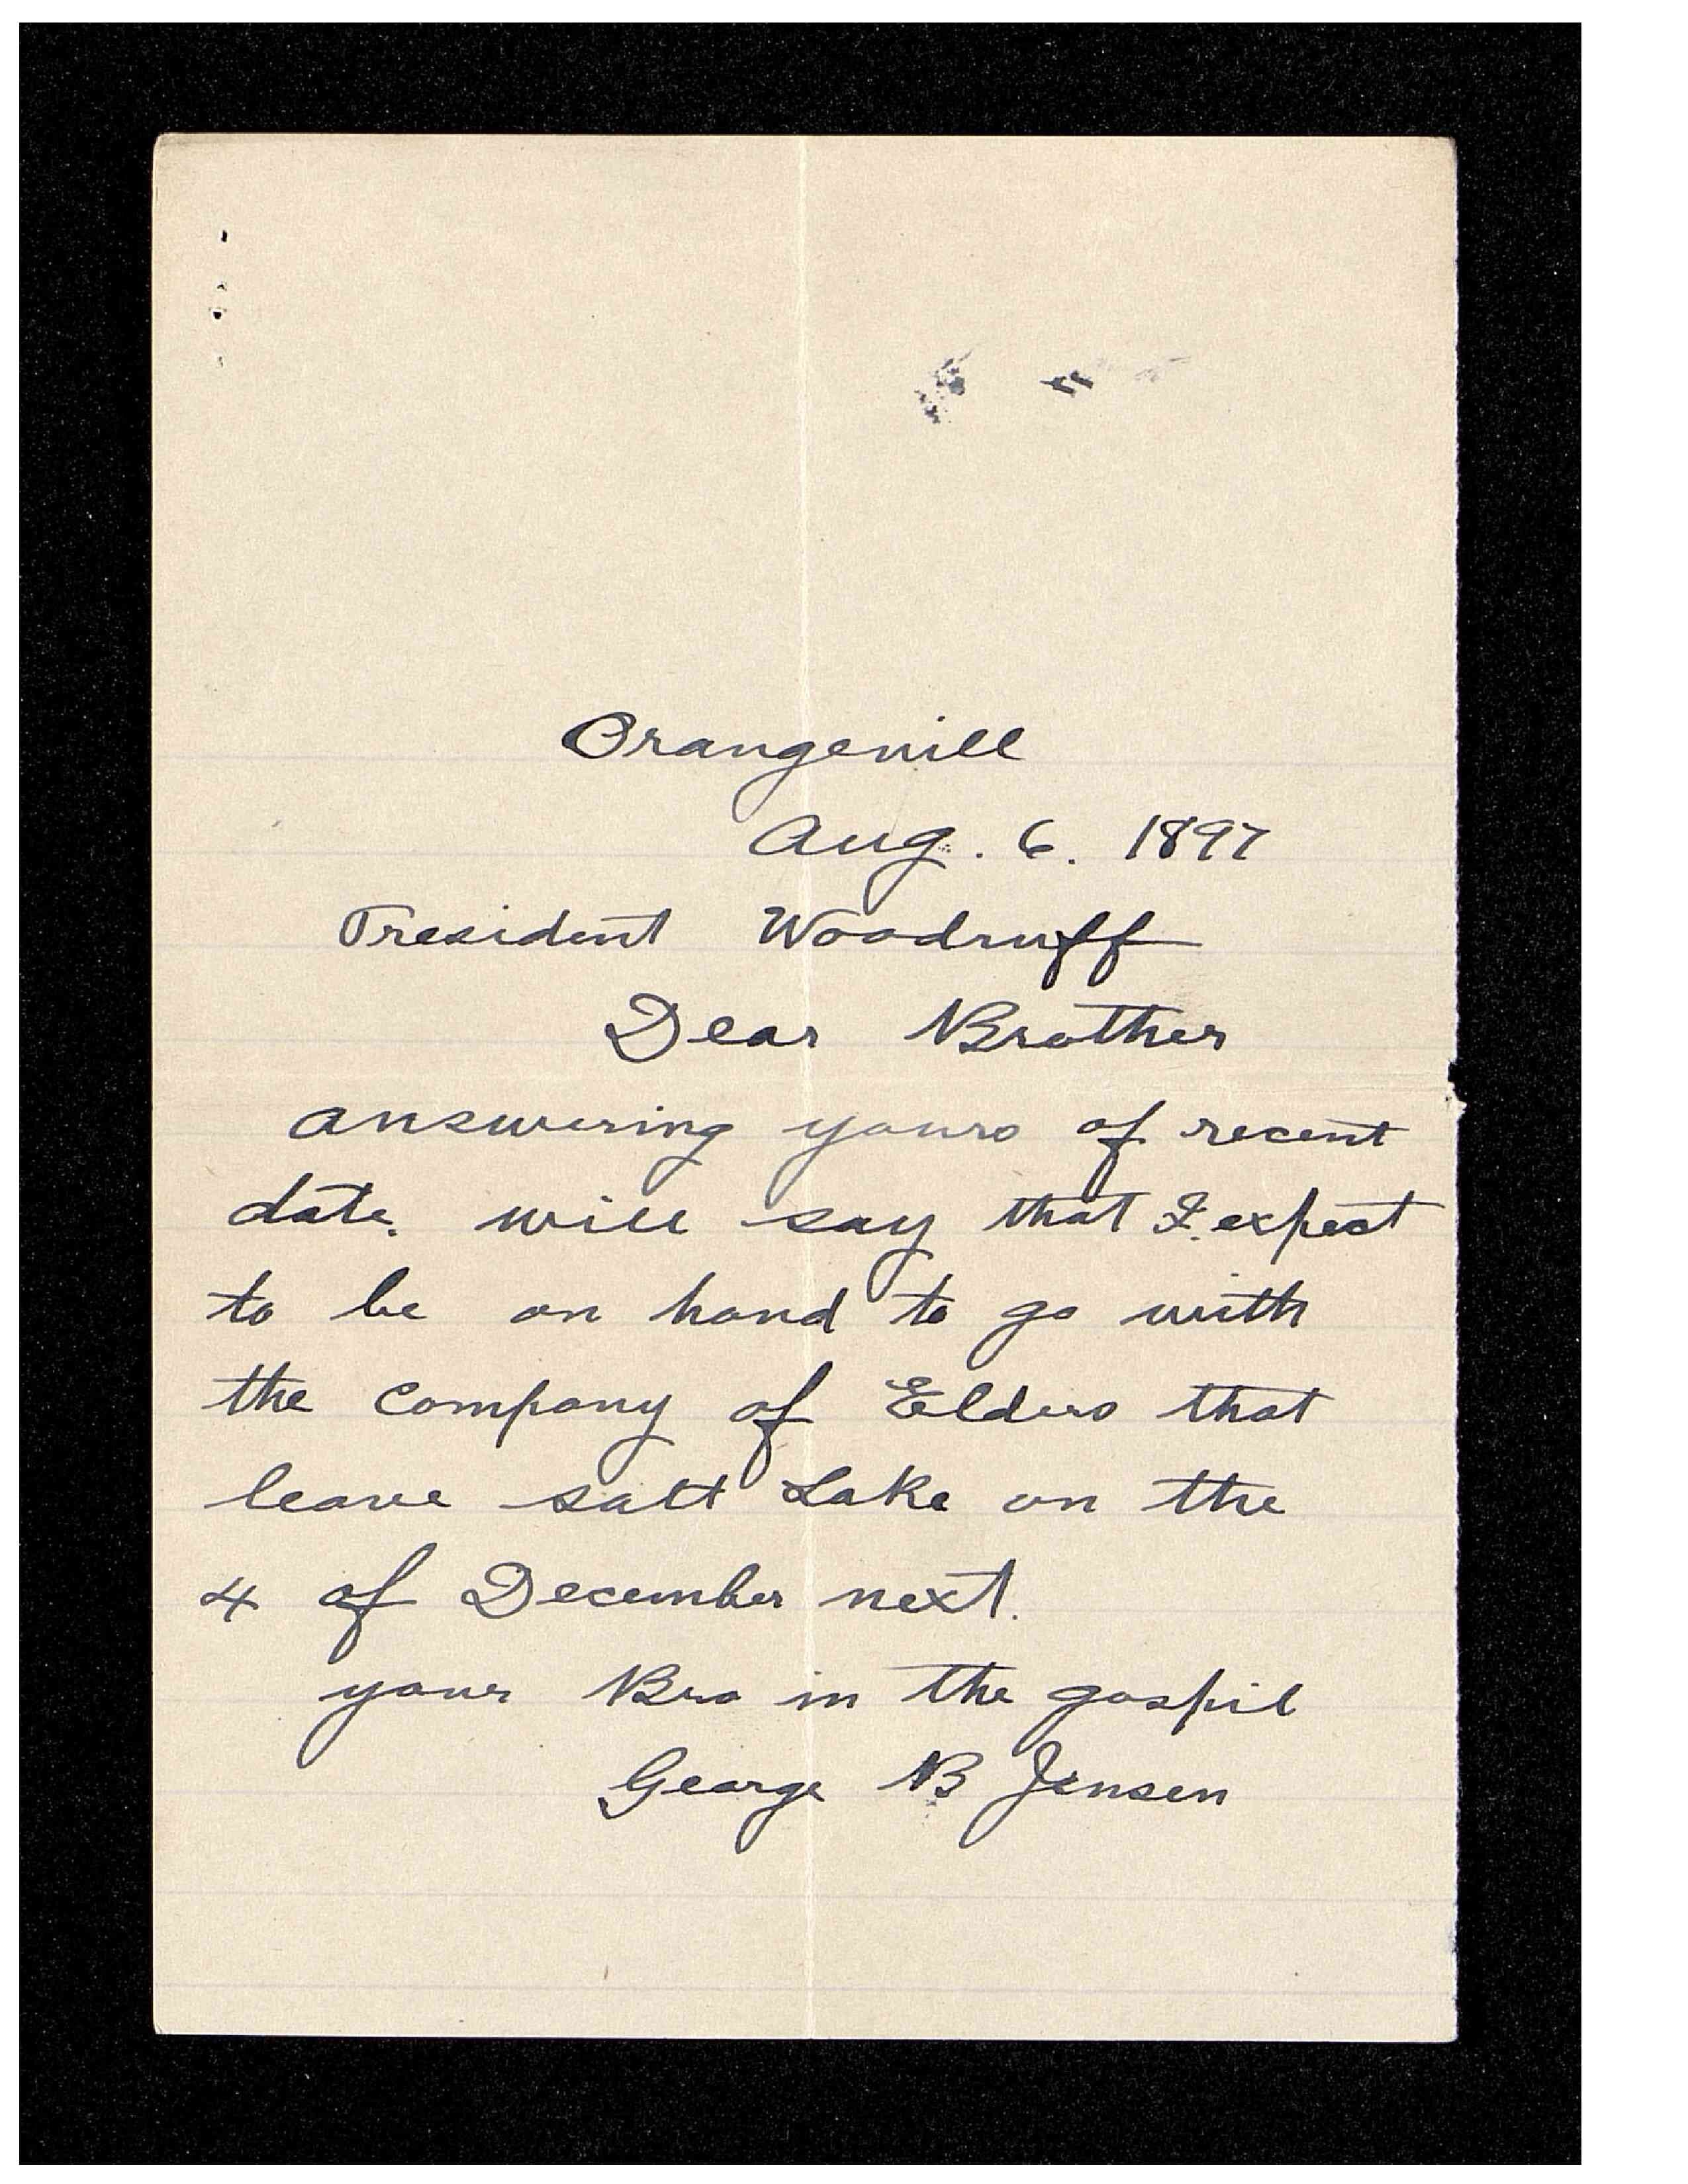 Orangevill
Aug. 6. 1897
President Woodruff
Dear Brother
answering yours of recent
date. will say that I. expect
to be on hand to go with
the Company of Elders that
leave salt Lake on the
4 of December next.
your Bro in the gospil
George B Jensen